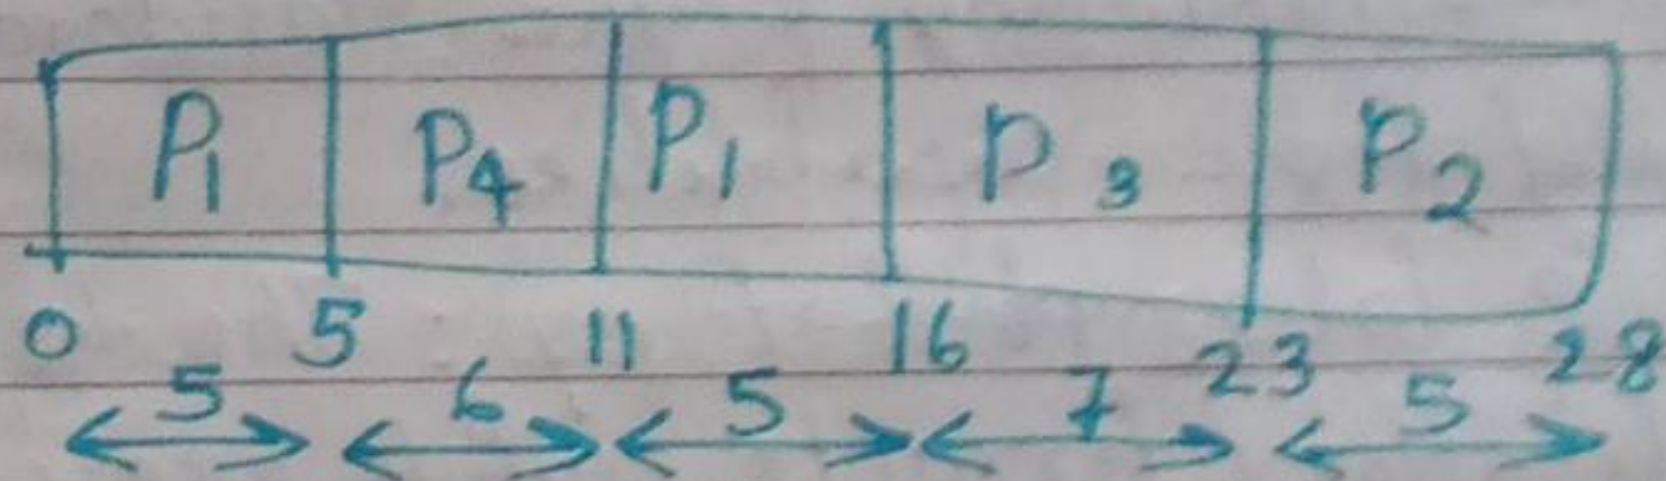 P1 P4 P1 P3 P2
0 5 11 16 23 28
5 6 5 7 5